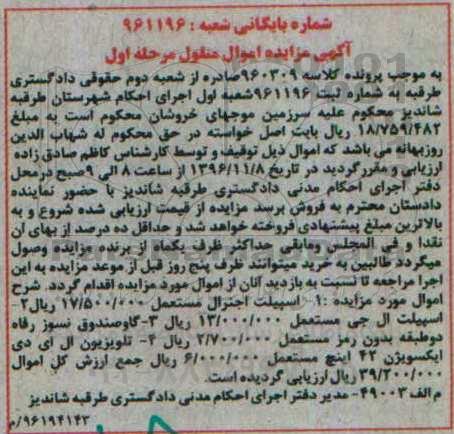 شماره بایگانی شعبه : ۹۶۱۱۹۶
آگهی مزایده اموال منقول مرحله اول
به موجب پرونده کلاسه ۹۶۰۳۰۹صادره از شعبه دوم حقوقی دادگستری
طرقبه به شماره ثبت ۹۶۱۱۹۶شعبه اول اجرای احکام شهرستان طرقبه
شاندیز محکوم علیه سرزمین موجهای خروشان محکوم است به مبلغ
۱۸/۷۵۹/۴۸۲ ریال بابت اصل خواسته در حق محکوم له شهاب الدین
روزبهانه می باشد که اموال ذیل توقیف و توسط کارشناس کاظم صادق زاده
ارزیابی و مقررگردید در تاریخ ۱۳۹۶/۱۱/۸ از ساعت ۸ الی ۹صبح درمحل
دفتر اجرای احکام مدنی دادگستری طرقبه شاندیز با حضور نماینده
دادستان محترم به فروش برسد مزایده از قیمت ارزیابی شده شروع و به
بالاترین مبلغ پیشنهادی فروخته خواهد شد و حداقل ده درصد از بهای آن
نقدا و فی المجلس ومابقی حداکثر ظرف یکماه از برنده مزایده وصول
میگردد طالبین به خرید میتوانند ظرف پنج روز قبل از موعد مزایده به این
اجرا مراجعه تا نسبت به بازدید آنان از اموال مورد مزایده اقدام گردد. شرح
اموال مورد مزایده :۱- اسپیلت اجنرال مستعمل ۱۷/۵۰۰/۰۰۰ ریال۲-
اسپیلت ال جی مستعمل ۱۳/۰۰۰/۰۰۰ ریال ۳-گاوصندوق نسوز رفاه
دوطبقه بدون رمز مستعمل ۲/۷۰۰/۰۰۰ ریال ۴- تلویزیون ال ای دی
ایکسویژن ۴۲ اینچ مستعمل ۶/۰۰۰/۰۰۰ ریال جمع ارزش کل اموال
۳۹/۲۰۰/۰۰۰ ریال ارزیابی گردیده است.
م الف ۴۹۰۰۳- مدیر دفتر اجرای احکام مدنی دادگستری طرقبه شاندیز
۹۶۱۹۴۱۴۳/م